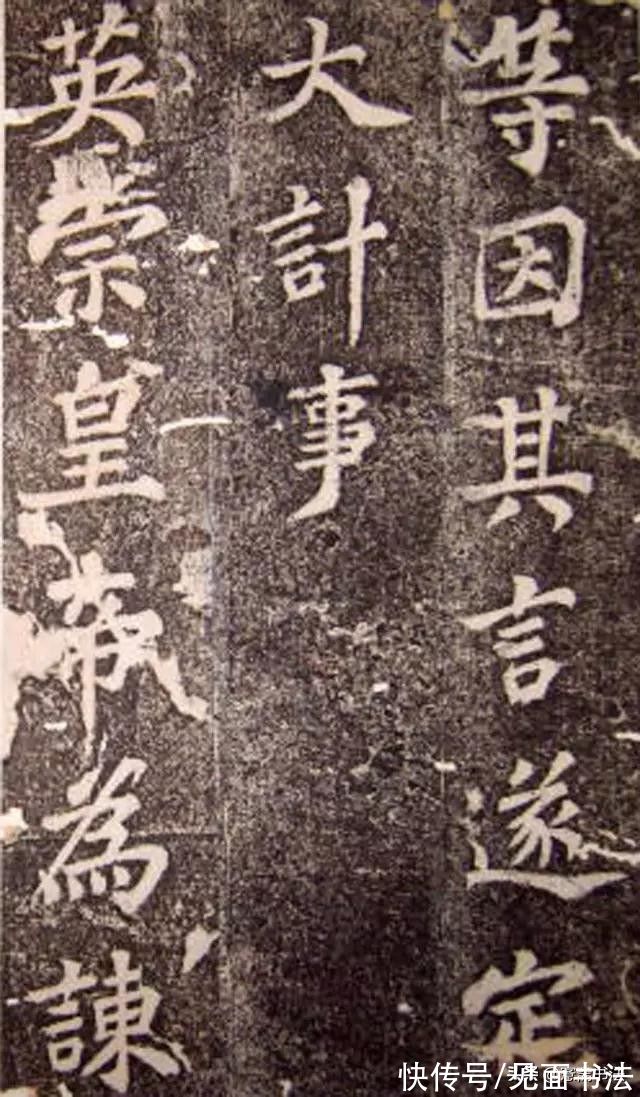 等因其言遂定
大計事
英宗皇帝為諫
快传号/见面书法